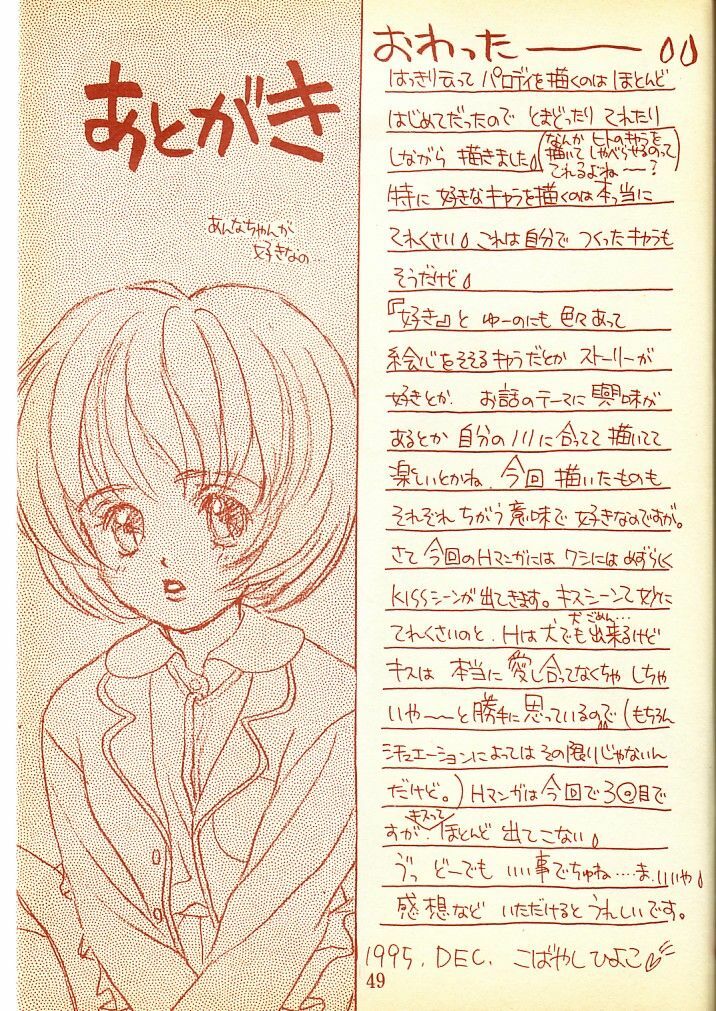 あとがき
あんなちゃんが
好きなの
おわったーー
はっきり云って パロディを描くのは ほとんど
はじめてだったので とまどったり てれたり
しながら 描きました(なんか ヒトのキャラを
描いて しゃべらせるのって
てれるよね〜?)
特に 好きなキャラを描くのは本っ当に
てれくさい。これは自分で つくったキャラも
そうだけど。
『好き』と ゆーのにも 色々あって
絵心をそそるキャラだとか ストーリーが
好きとか お話のテーマに 興味が
あるとか 自分のノリに合ってて 描いてて
楽しいとかね. 今回 描いたものも
それぞれ ちがう意味で 好きなのですが。
さて 今回のHマンガには ワシには めずらしく
KISSシーンが出てきます。キスシーンて妙に
てれくさいのと、Hは犬でも出来るけど
犬ごめん…
キスは 本当に 愛し合ってなくちゃ しちゃ
いや〜〜と勝手に思っているので(もちろん
シチュエーションによっては その限りじゃないん
だけど。)Hマンガは 今回で 3回目で
すが. キスって ほとんど 出てこない。
ゔっ どーでも いい事でちゅね…ま.いいや。
感想など いただけると うれしいです。
1995. DEC. こばやしひよこ
49